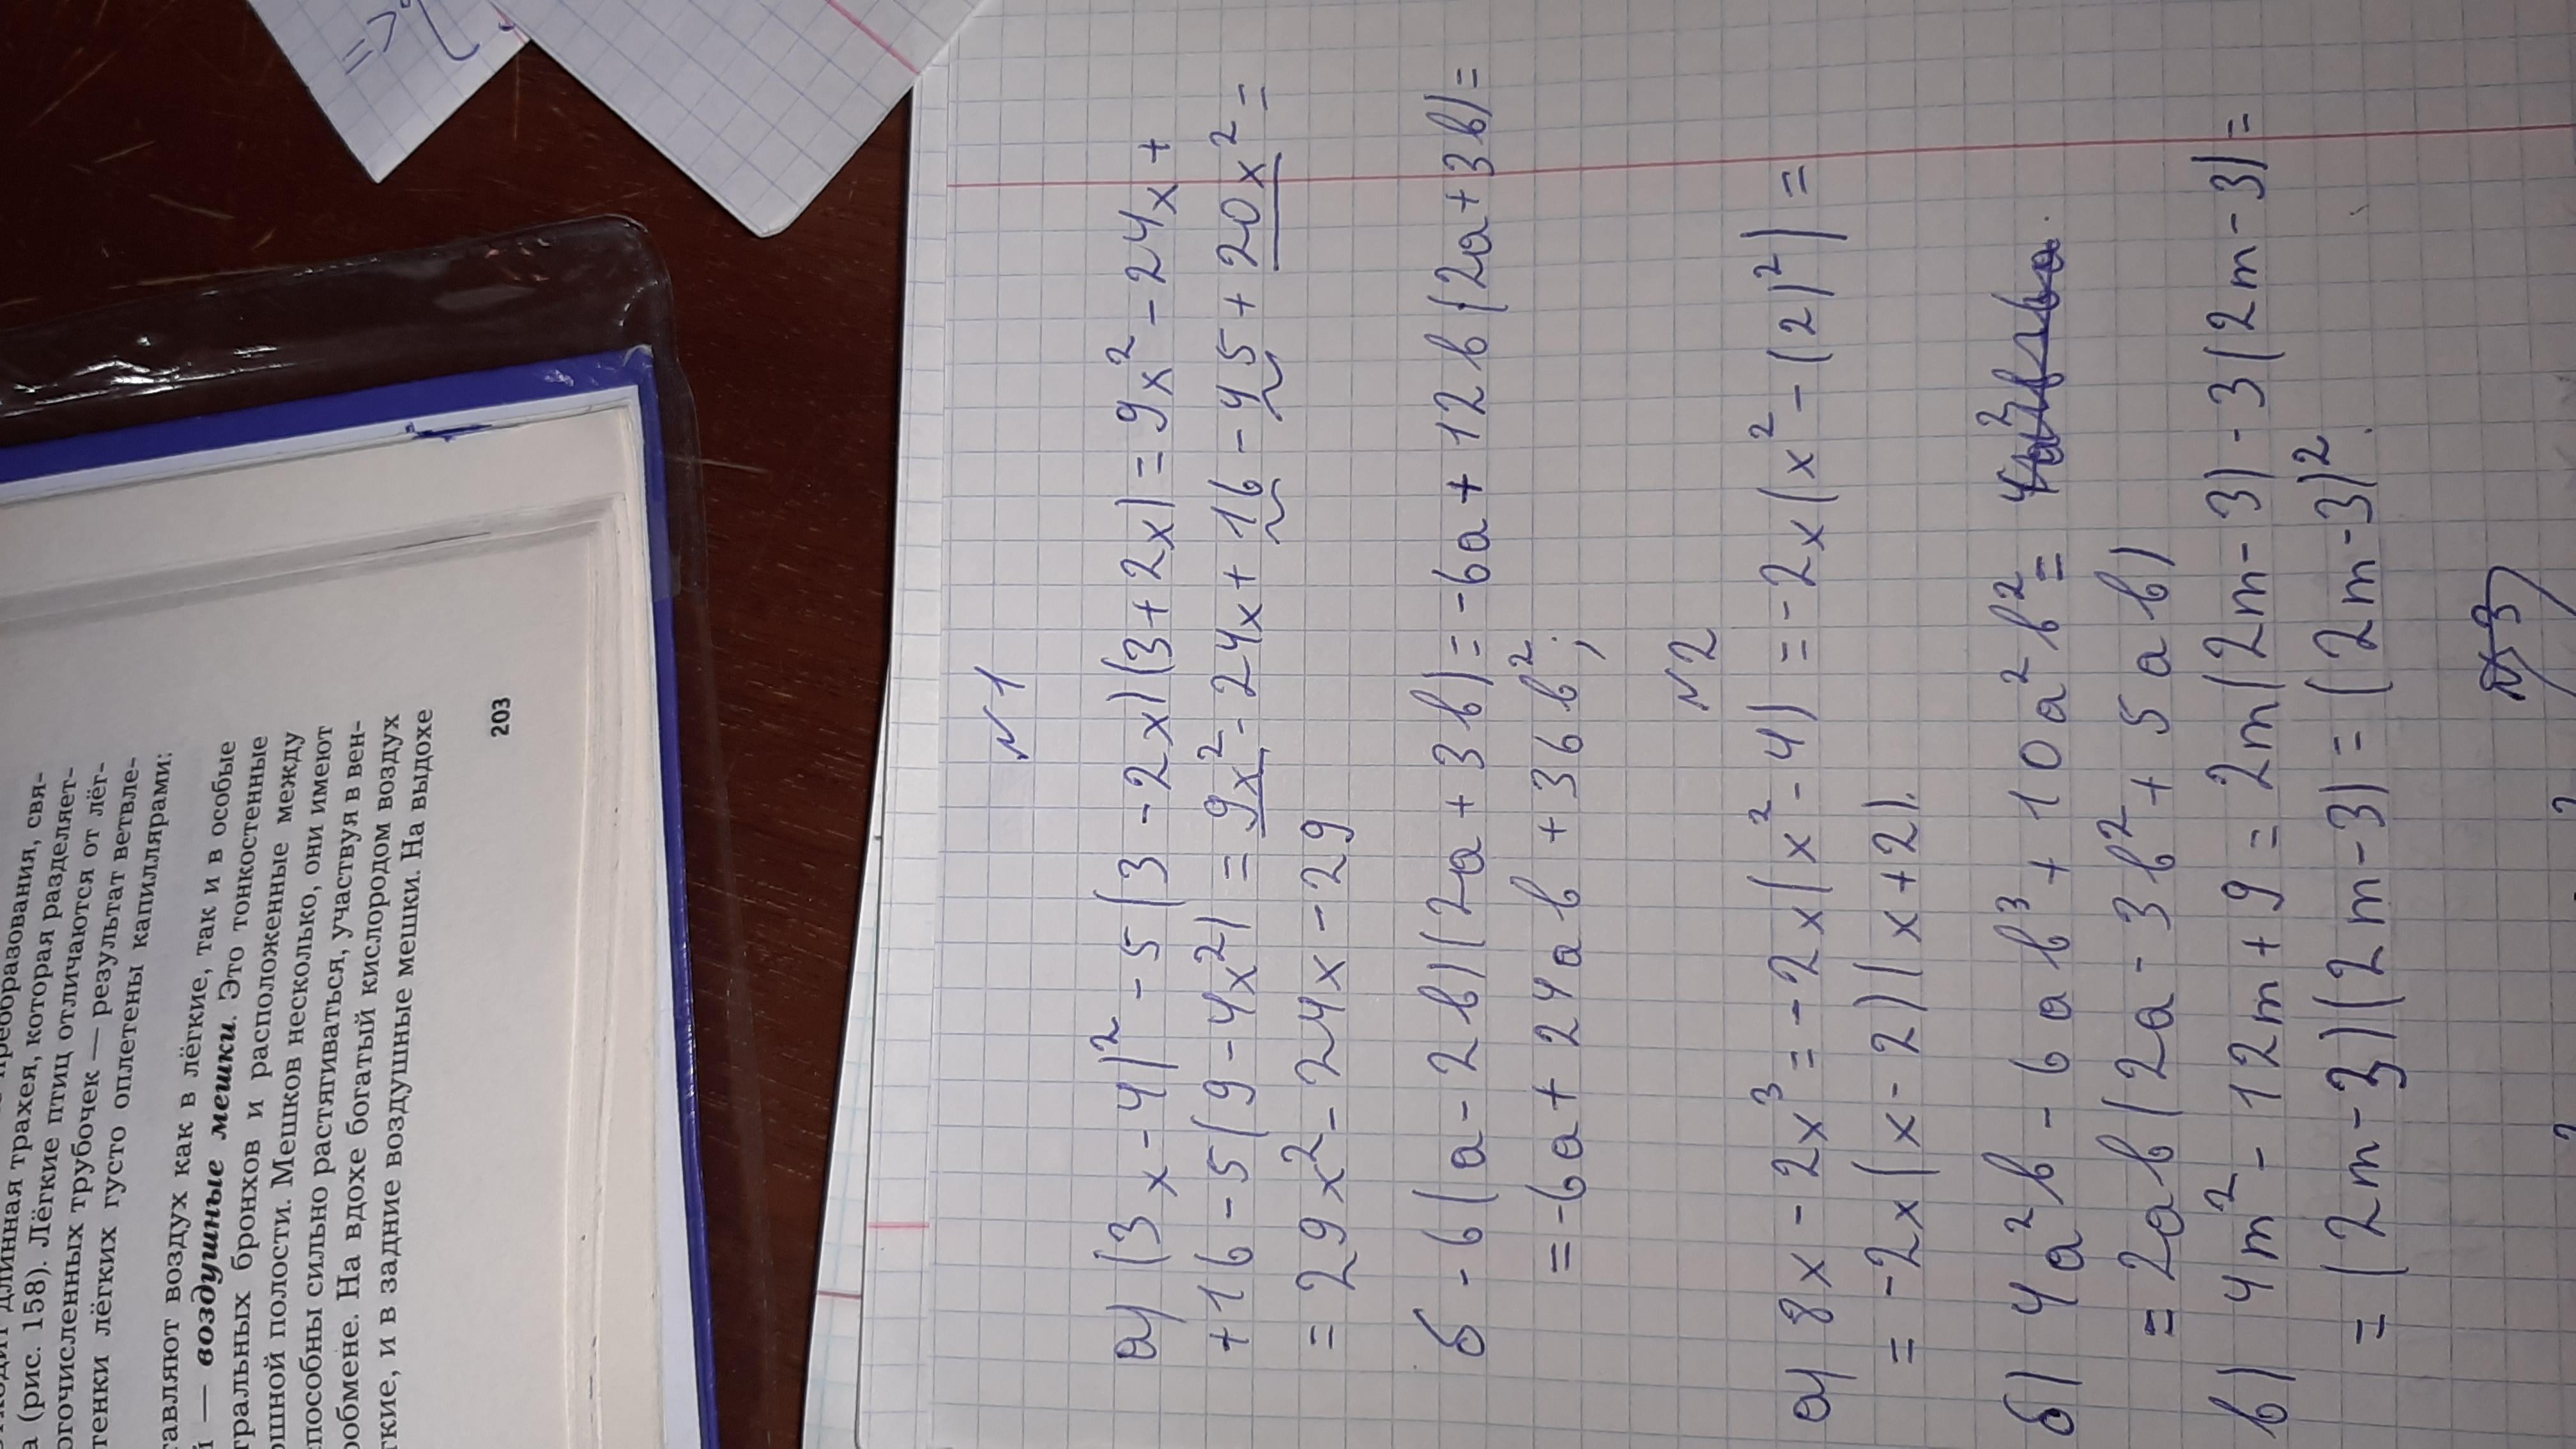 преобразования, свя-
одит длинная трахея, которая разделяет-
а (рис. 158). Лёгкие птиц отличаются от лёг-
огочисленных трубочек — результат ветвле-
тенки лёгких густо оплетены капиллярами:
тавляют воздух как в лёгкие, так и в особые
й — воздушные мешки. Это тонкостенные
тральных бронхов и расположенные между
ошной полости. Мешков несколько, они имеют
пособны сильно растягиваться, участвуя в вен-
обмене. На вдохе богатый кислородом воздух
гкие, и в задние воздушные мешки. На выдохе
203
=> {
N 1
а) (3x-4)² - 5(3-2x)(3+2x) = 9x² - 24x +
+ 16 - 5(9-4x²) = 9x² - 24x + 16 - 45 + 20x² =
= 29x² - 24x - 29
б -6(a-2b)(2a+3b) = -6a + 12b(2a+3b) =
= -6a + 24ab + 36b²;
N2
а) 8x - 2x³ = -2x(x²-4) = -2x(x² - (2)²) =
= -2x(x-2)(x+2).
б) 4a²b - 6ab³ + 10a²b² =
= 2ab(2a - 3b² + 5ab)
в) 4m² - 12m + 9 = 2m(2m-3) - 3(2m-3) =
= (2m-3)(2m-3) = (2m-3)².
N3